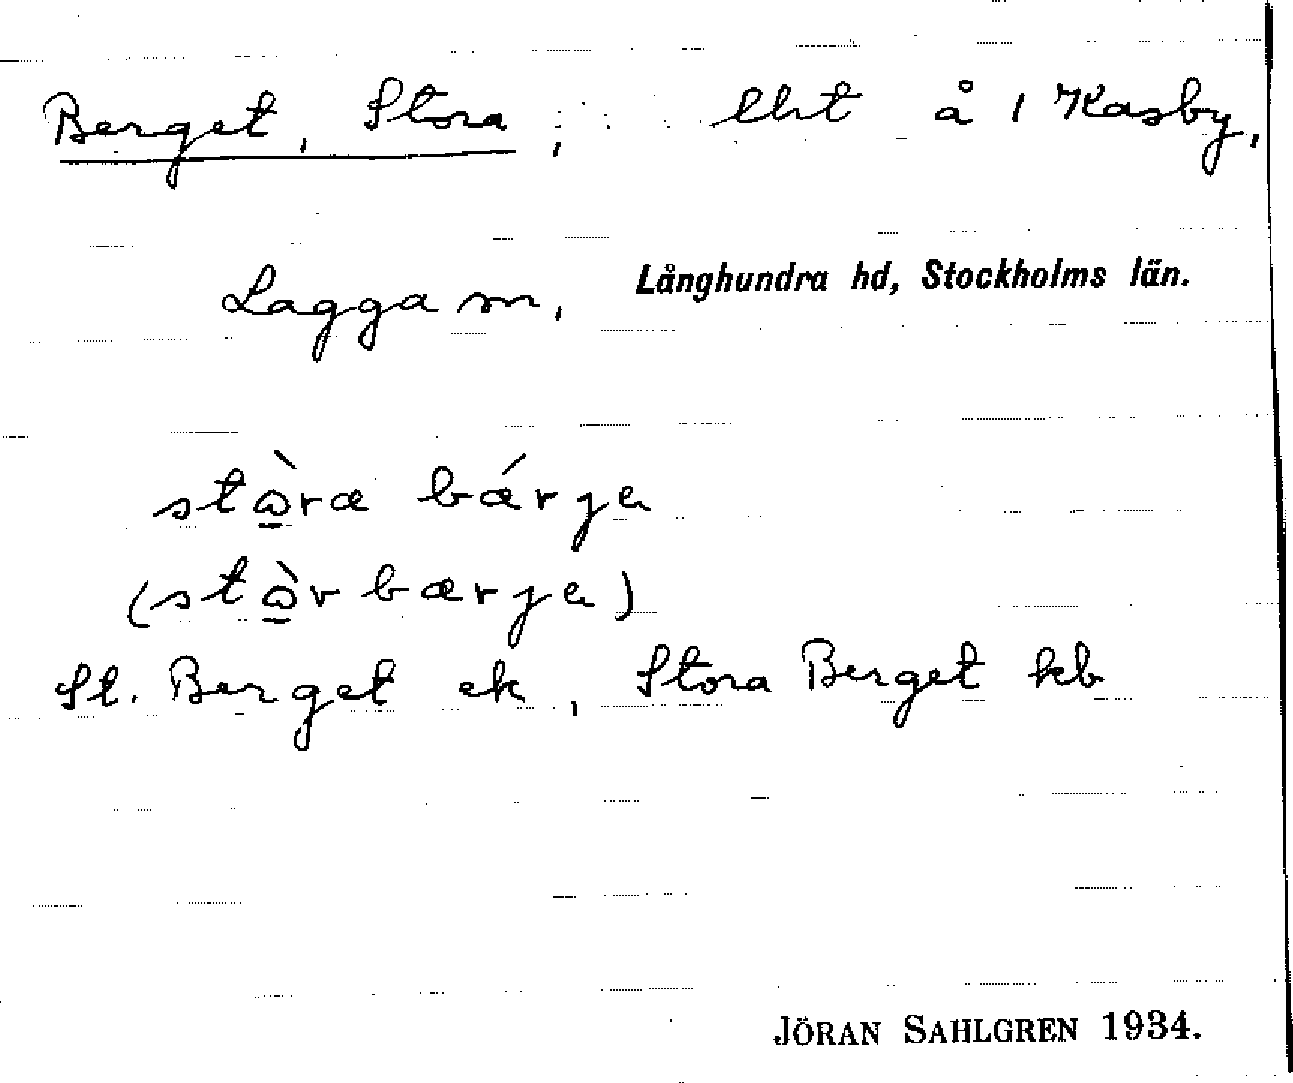 Berget, Stora; lht å 1 Kasby,
Lagga sn, Långhundra hd, Stockholms län.
stὼ̲ra bǽrjα
(stὼ̲rbærjα)
St. Berget ek, Stora Berget kb
JÖRAN SAHLGREN 1934.